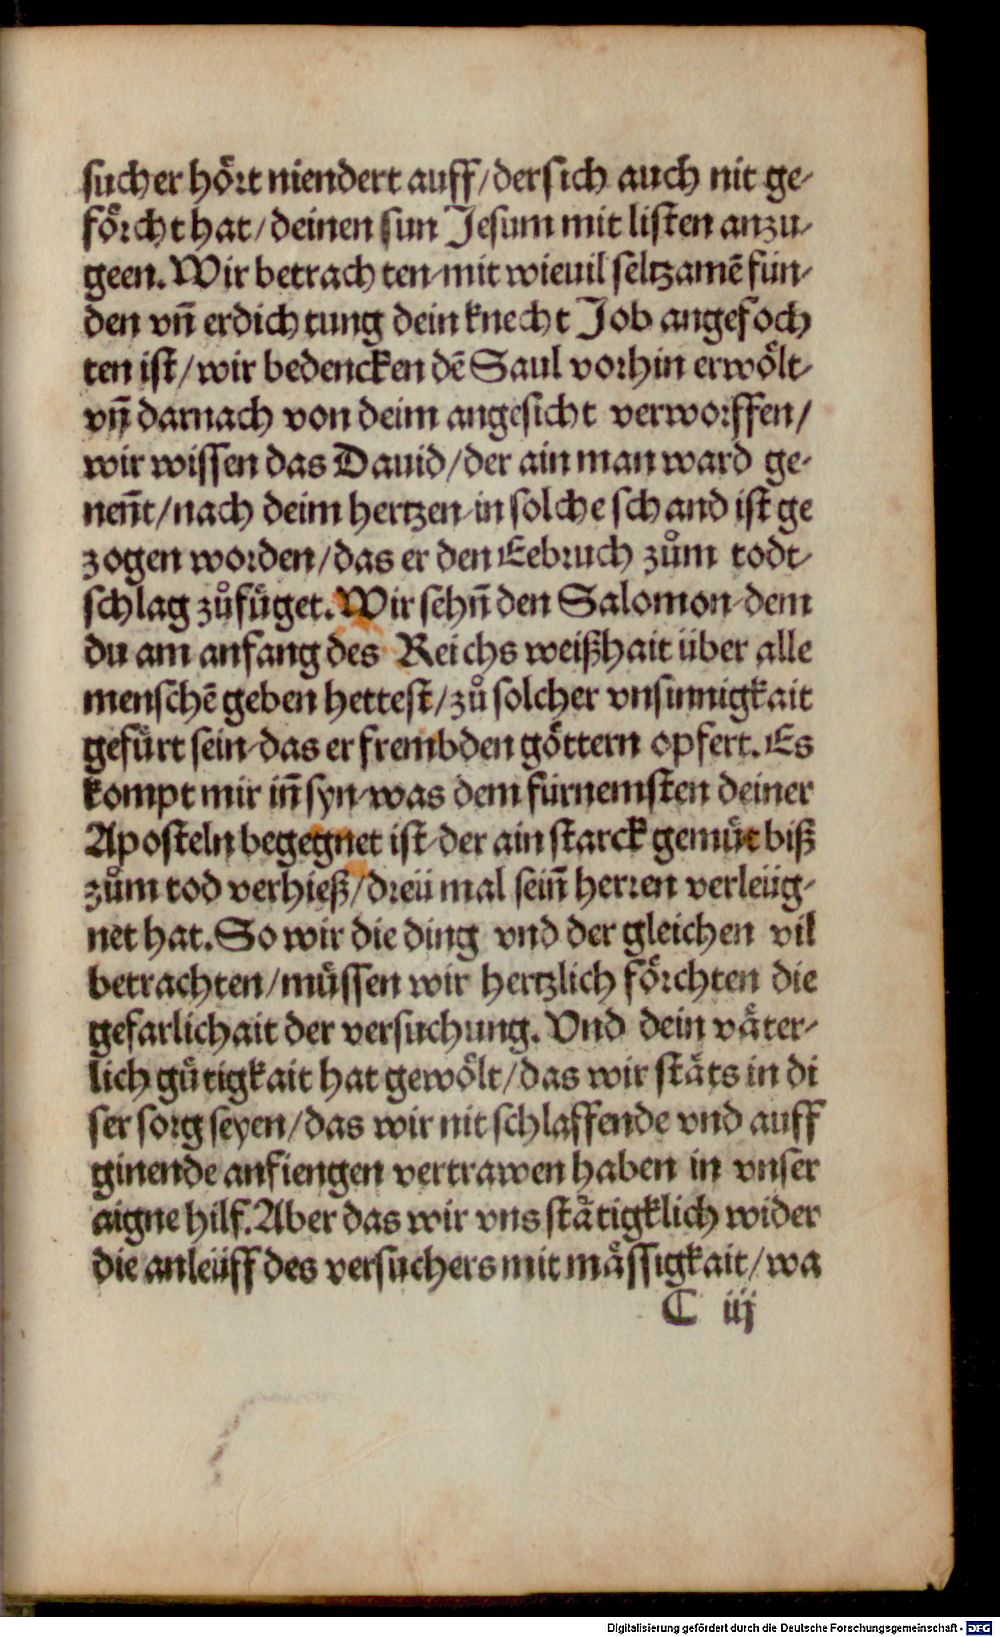 sucher hoͤrt niendert auff/der sich auch nit ge⸗
foͤrcht hat/deinen sun Jesum mit listen anzu⸗
geen. Wir betrachten⸗mit wieuil seltzamē fün⸗
den vn̄ erdichtung dein knecht Job angefoch
ten ist/wir bedencken dē Saul vorhin erwoͤlt⸗
vn̄ darnach von deim angesicht verworffen/
wir wissen das Dauid/der ain man ward ge⸗
nen̄t/nach deim hertzen⸗in solche schand ist ge
zogen worden/das er den Eebruch zům todt⸗
schlag zůfuͤget. Wir sehn̄ den Salomon⸗dem
du am anfang des Reichs weißhait über alle
menschē geben hettest/zů solcher vnsinnigkait
gefuͤrt sein⸗das er frembden goͤttern opfert. Es
kompt mir in̄ syn⸗was dem fürnemsten deiner
Aposteln begegnet ist⸗der ain starck gemuͤt biß
zům tod verhieß/dreü mal sein̄ herren verleüg⸗
net hat. So wir die ding vnd der gleichen vil
betrachten/muͤssen wir hertzlich foͤrchten die
gefarlichait der versuchung. Vnd dein vaͤter⸗
lich guͤtigkait hat gewoͤlt/das wir staͤts in di
ser sorg seyen/das wir nit schlaffende vnd auff
ginende anfiengen vertrawen haben in vnser
aigne hilf. Aber das wir vns staͤtigklich wider
die anleüff des versuchers mit maͤssigkait/wa
C iij
Digitalisierung gefördert durch die Deutsche Forschungsgemeinschaft - DFG